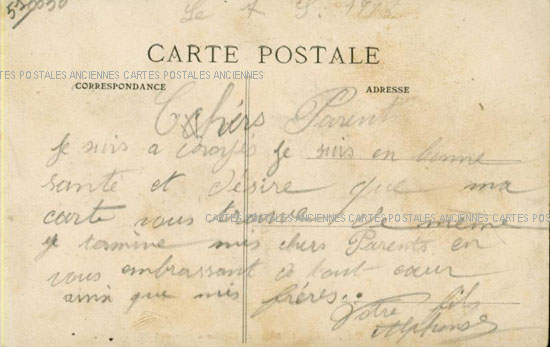 Le 1 5 191
CARTE POSTALE
CARTES POSTALES ANCIENNES CARTES POSTALES ANCIENNES
CORRESPONDANCE
ADRESSE
Chérs Parent
Je suis a je suis en bonne
santé et désire que ma
carte vous trouve de même
CARTES POSTALES ANCIENNES CARTES POSTALES
je termine mes chers Parents en
vous embrassant de tout cœur
ainsi que mes frères..
Votre fils
Alphonse